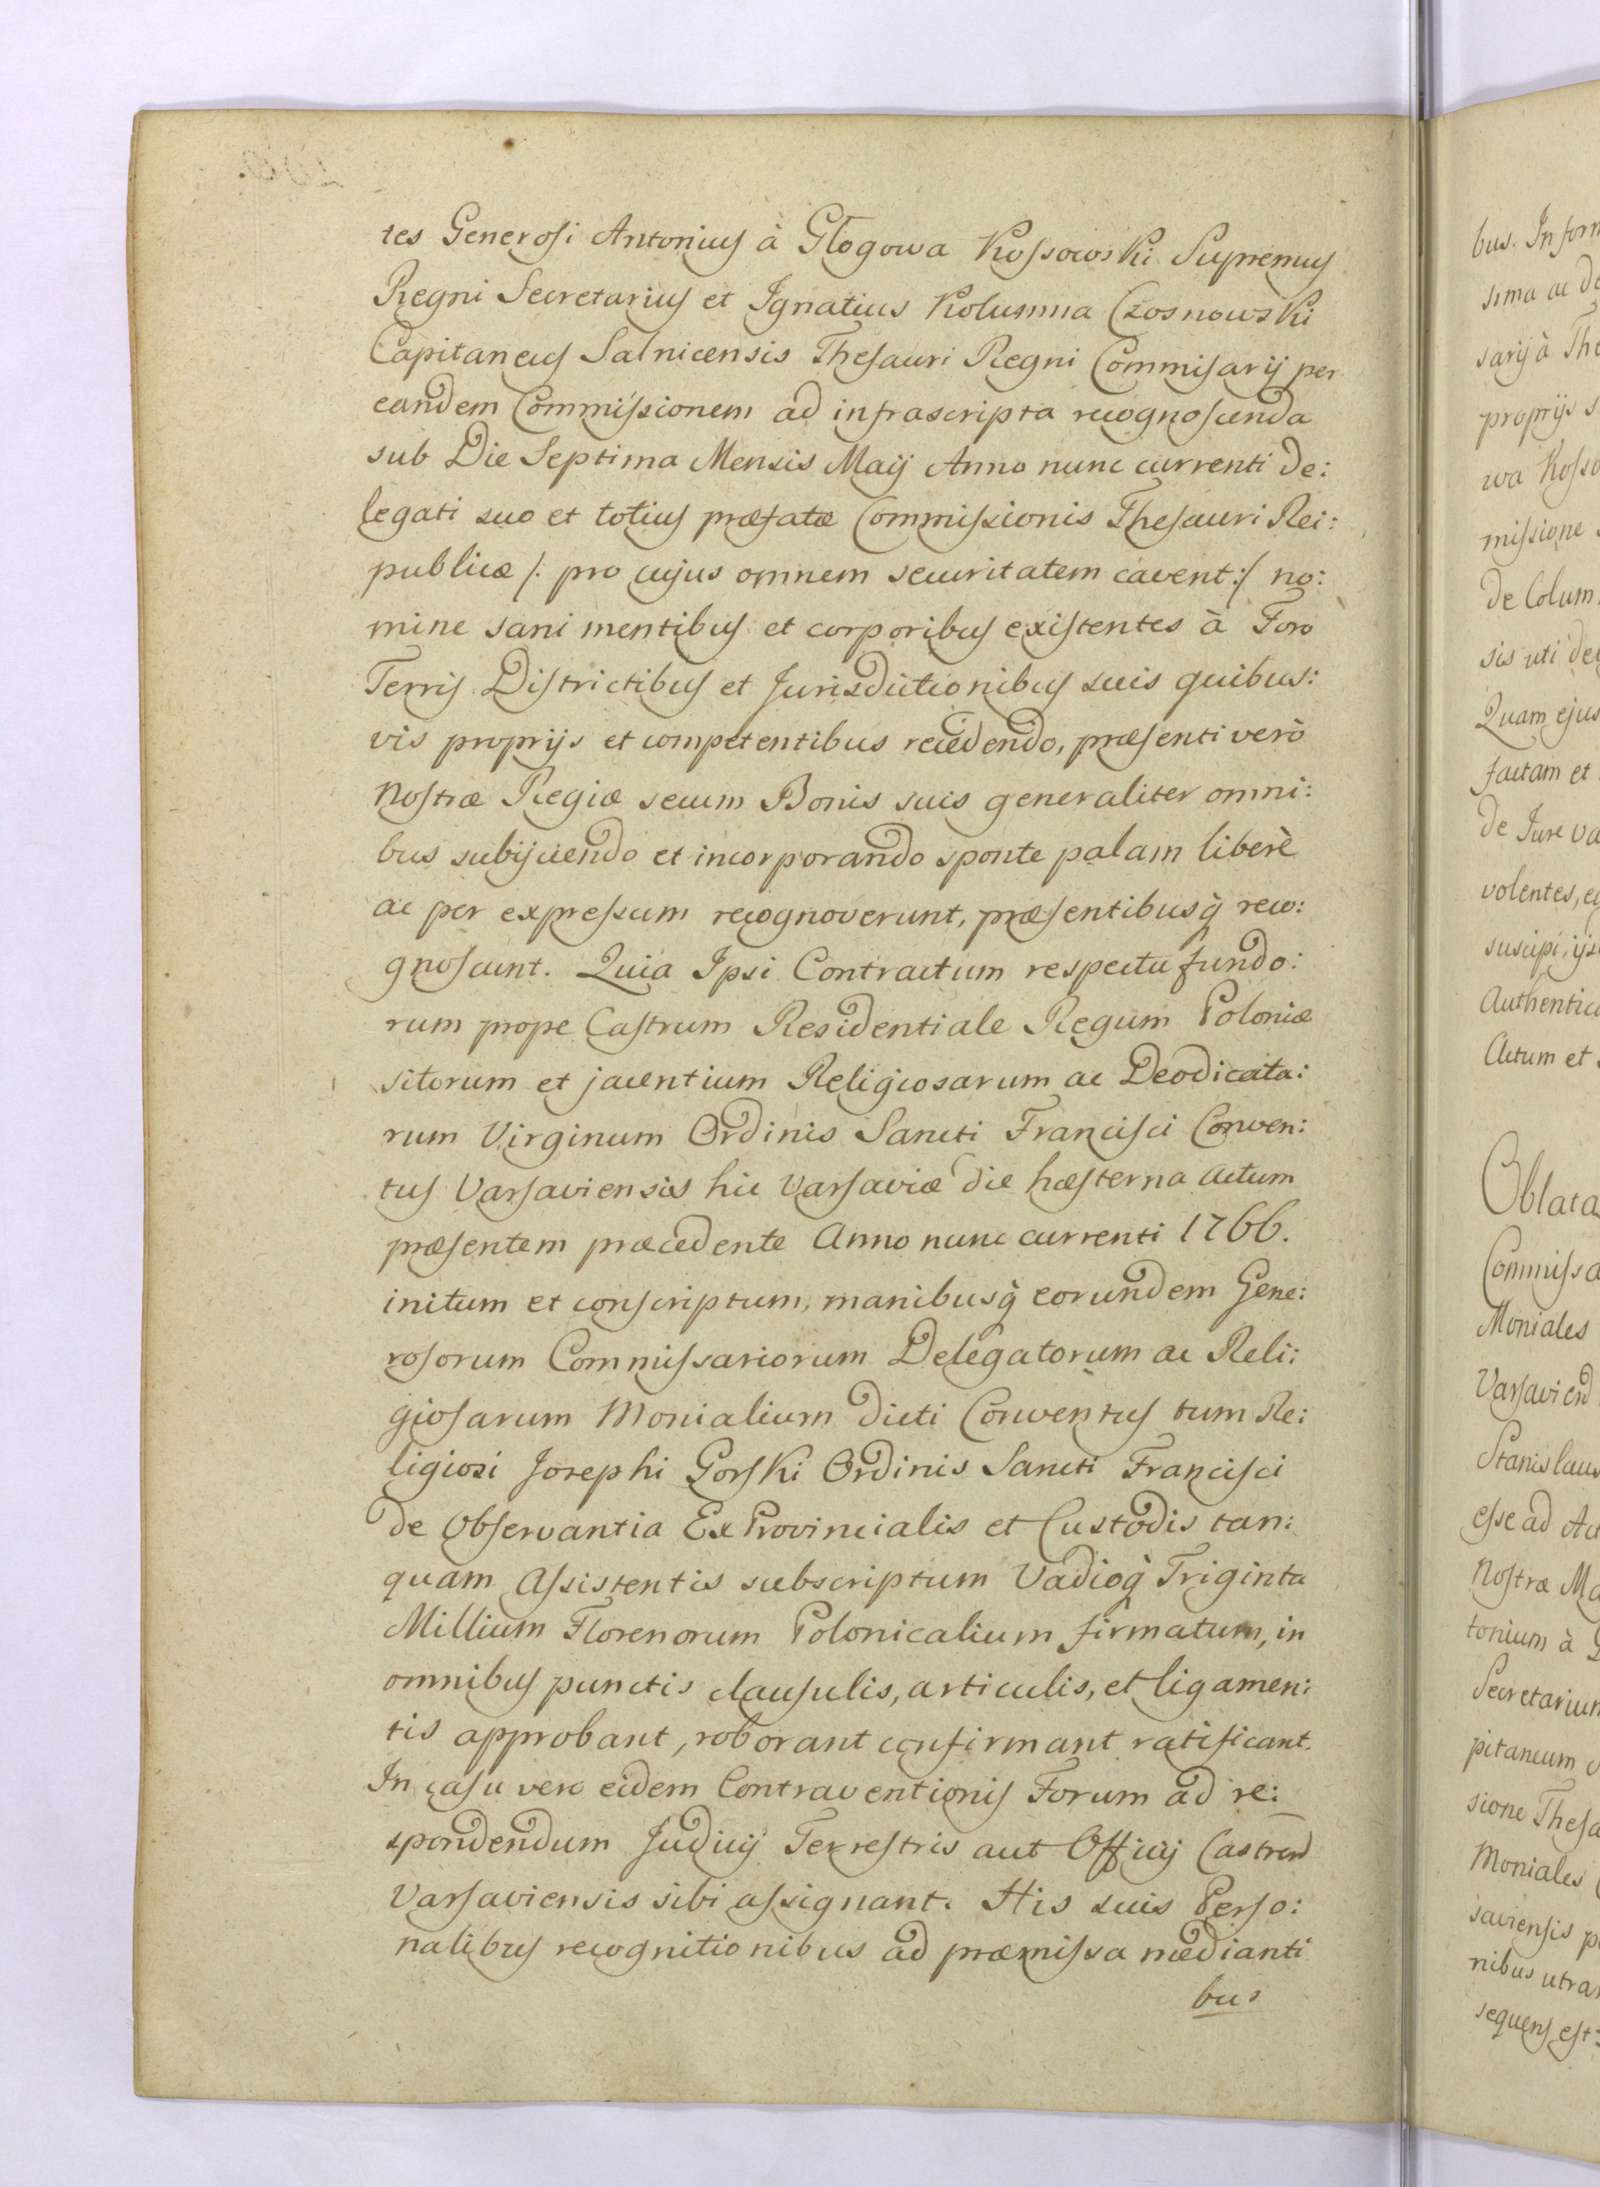 tes Generosi Antonius à Głogowa Kossowski Supremus
Regni Secretarius et Ignatius Kolumna Czosnowski
Capitaneus Salnicensis Thesauri Regni Commisarij per
eandem Commissionem ad infrascripta recognoscenda
sub Die Septima Mensis Maij Anno nunc currenti de:
legati suo et totius præfatæ Commissionis Thesauri Rei:
publicæ /: pro cujus omnem securitatem cavent :/ no:
mine sani mentibus et corporibus existentes à Foro
Terris Districtibus et Jurisdictionibus suis quibus:
vis proprijs et competentibus recedendo, præsenti verò
Nostræ Regiæ secum Bonis suis generaliter omni:
bus subijciendo et incorporando sponte palam liberè
ac per expressum recognoverunt, præsentibusq̀ reco:
gnoscunt. Quia Ipsi Contractum respectu fundo:
rum prope Castrum Residentiale Regum Poloniæ
sitorum et jacentium Religiosarum ac Deodicata:
rum Virginum Ordinis Sancti Francisci Conven:
tus Varsaviensis hic Varsaviæ die hæsterna actum
præsentem præcedente Anno nunc currenti 1766.
initum et conscriptum, manibusq̀ eorundem Gene:
rosorum Commissariorum Delegatorum ac Reli:
giosarum Monialium dicti Conventus tum Re:
ligiosi Josephi Gorski Ordinis Sancti Francisci
de Observantia ExProvincialis et Custodis tan:
quam Assistentis subscriptum Vadioq̀ Triginta
Millium Florenorum Polonicalium firmatum, in
omnibus punctis clausulis, articulis, et ligamen:
tis approbant, roborant confirmant ratificant.
In casu vero eidem Contraventionis Forum ad re:
spondendum Judicij Terrestris aut Officij Castren
Varsaviensis sibi assignant. His suis Perso:
nalibus recognitionibus ad præmissa medianti
bus
bus. In form
sima ac de
sarij à The
proprijs s
wa Kosso
missione
de Colum
sis uti de
Quam ejus
factam et
de Jure va
volentes, e
suscipi, ijs
Authentic
Actum et
Oblata
Commissa
Moniales
Varsavien
Stanislaus
esse ad Act
Nostræ Ma
tonium à
Secretarium
pitaneum
sione Thesa
Moniales
saviensis p
nibus utra
sequens est: